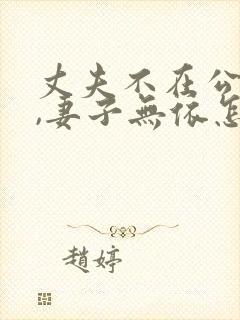 丈夫不在公
,妻子無依怎
趙婷